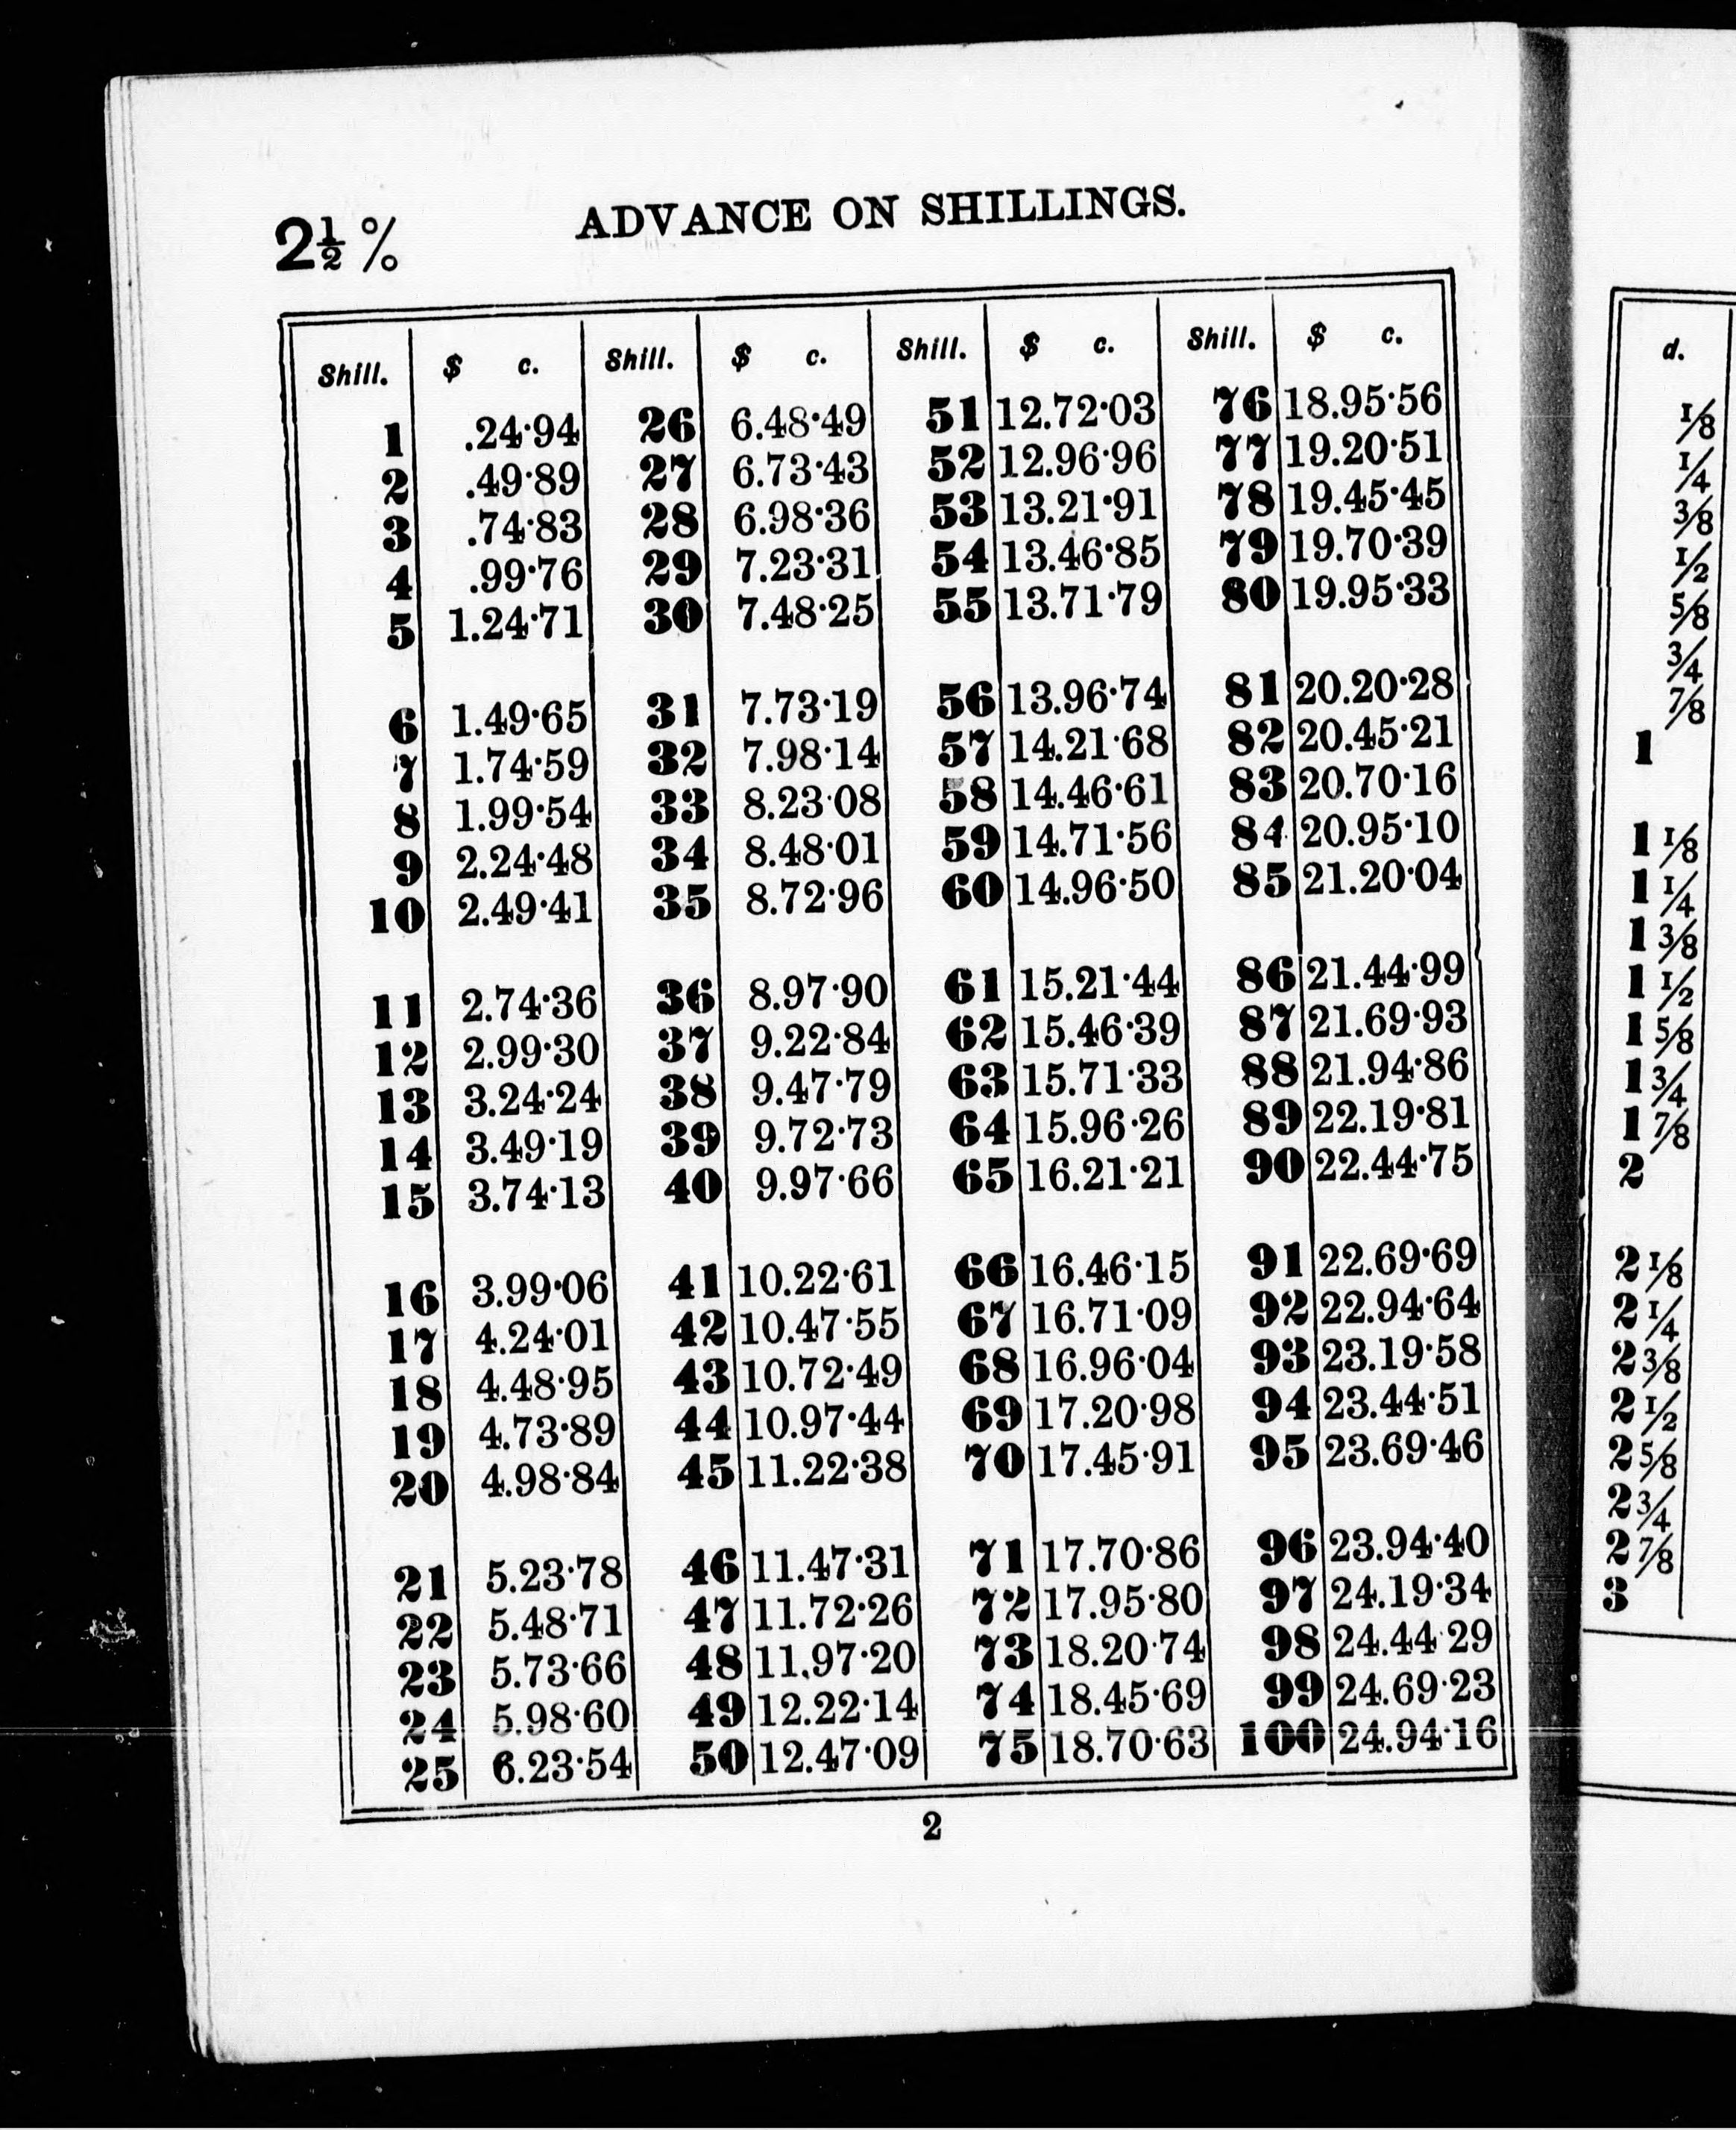 2½ %
ADVANCE ON SHILLINGS.
Shill. $ c. Shill. $ c. Shill. $ c. Shill. $ c.
1 .24·94 26 6.48·49 51 12.72·03 76 18.95·56
2 .49·89 27 6.73·43 52 12.96·96 77 19.20·51
3 .74·83 28 6.98·36 53 13.21·91 78 19.45·45
4 .99·76 29 7.23·31 54 13.46·85 79 19.70·39
5 1.24·71 30 7.48·25 55 13.71·79 80 19.95·33
6 1.49·65 31 7.73·19 56 13.96·74 81 20.20·28
7 1.74·59 32 7.98·14 57 14.21·68 82 20.45·21
8 1.99·54 33 8.23·08 58 14.46·61 83 20.70·16
9 2.24·48 34 8.48·01 59 14.71·56 84 20.95·10
10 2.49·41 35 8.72·96 60 14.96·50 85 21.20·04
11 2.74·36 36 8.97·90 61 15.21·44 86 21.44·99
12 2.99·30 37 9.22·84 62 15.46·39 87 21.69·93
13 3.24·24 38 9.47·79 63 15.71·33 88 21.94·86
14 3.49·19 39 9.72·73 64 15.96·26 89 22.19·81
15 3.74·13 40 9.97·66 65 16.21·21 90 22.44·75
16 3.99·06 41 10.22·61 66 16.46·15 91 22.69·69
17 4.24·01 42 10.47·55 67 16.71·09 92 22.94·64
18 4.48·95 43 10.72·49 68 16.96·04 93 23.19·58
19 4.73·89 44 10.97·44 69 17.20·98 94 23.44·51
20 4.98·84 45 11.22·38 70 17.45·91 95 23.69·46
21 5.23·78 46 11.47·31 71 17.70·86 96 23.94·40
22 5.48·71 47 11.72·26 72 17.95·80 97 24.19·34
23 5.73·66 48 11.97·20 73 18.20·74 98 24.44·29
24 5.98·60 49 12.22·14 74 18.45·69 99 24.69·23
25 6.23·54 50 12.47·09 75 18.70·63 100 24.94·16
2
d.
1/8
1/4
3/8
1/2
5/8
3/4
7/8
1
1 1/8
1 1/4
1 3/8
1 1/2
1 5/8
1 3/4
1 7/8
2
2 1/8
2 1/4
2 3/8
2 1/2
2 5/8
2 3/4
2 7/8
3